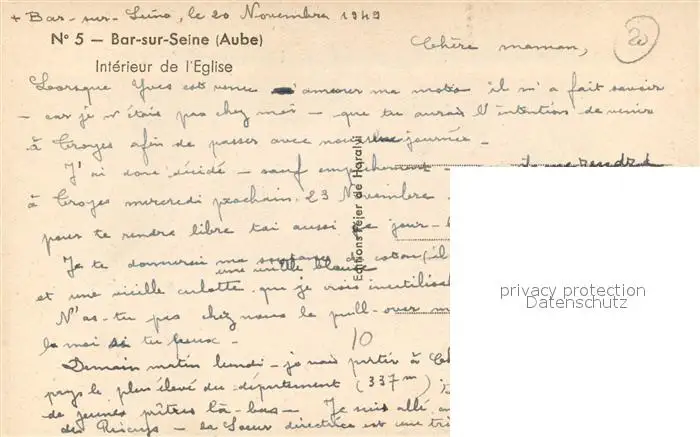 + Bar-sur-Seine, le 20 Novembre 1949
N° 5 — Bar-sur-Seine (Aube)
Intérieur de l'Eglise
20
Chère maman,
Lorsque Yves est venu m'amener ma moto il m'a fait savoir
- car je n'étais pas chez moi - que tu aurais l'intention de venir
à Troyes afin de passer avec nous une journée -
J'ai donc décidé - sauf empêchement - me rendre
à Troyes mercredi prochain 23 Novembre -
pour te rendre libre toi aussi ce jour-
Je te donnerai ma de coton (il
une vieille blouse
et une vieille culotte que je crois inutilis
N'as-tu pas chez nous le pull-over
la moi si tu peux -
10
Demain matin lundi - je vais partir à
pays le plus élevé du département (337m)
de jeunes prêtres là-bas - Je suis allé
des Riceys - la Soeur directrice est une
Editions Féjer de Haralyi
privacy protection
Datenschutz